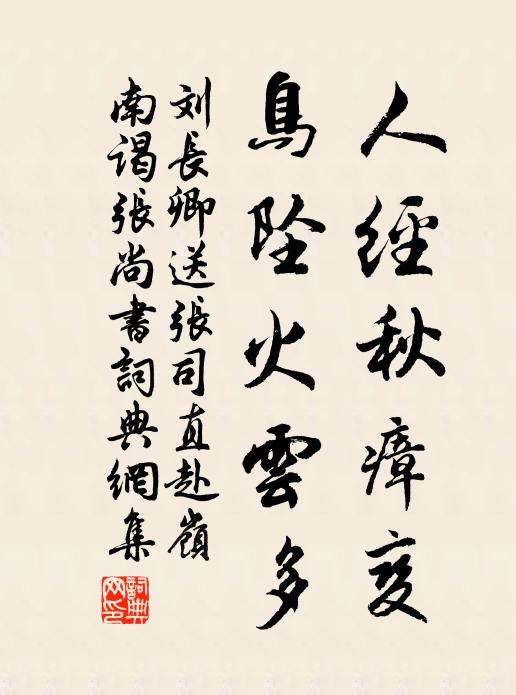 人經秋瘴变
鳥坠火雲多
刘長卿送張司直赴嶺
南謁張尚書詞典網集
詞典网印